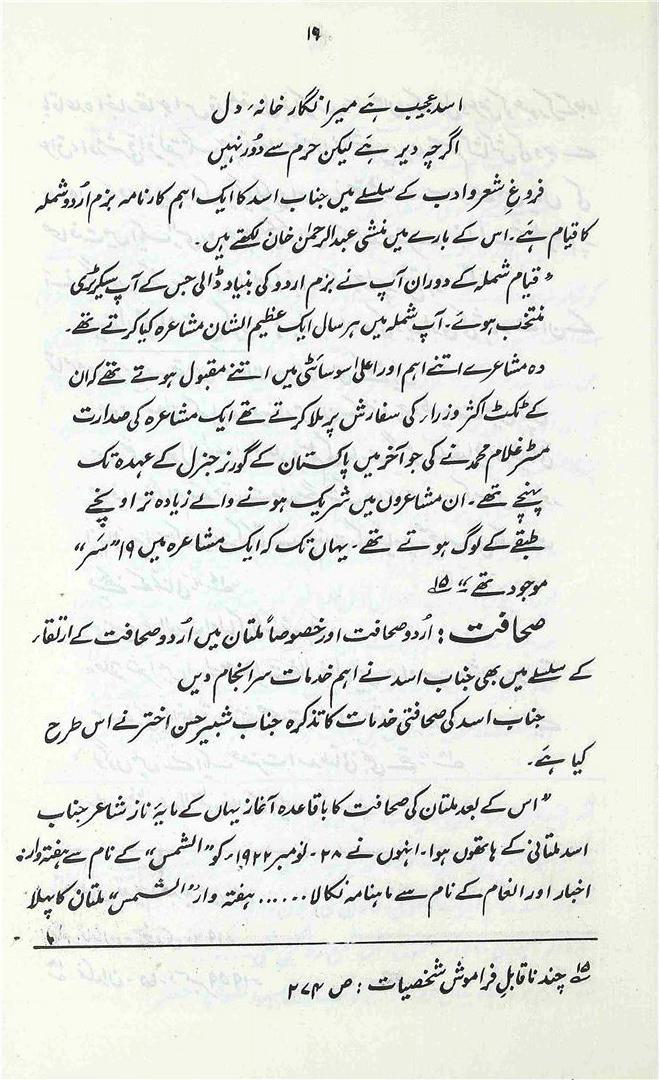 ۱۹
اسد عجیب ہَے میرا نگار خانۂ دل
اگرچہ دیر ہَے لیکن حرم سے دُور نہیں
فروغِ شعر و ادب کے سلسلے میں جناب اسد کا ایک اہم کارنامہ بزمِ اُردو شملہ
کا قیام ہَے۔ اس کے بارے میں منشی عبدالرحمٰن خان لکھتے ہیں۔
"قیام شملہ کے دوران آپ نے بزم اردو کی بنیاد ڈالی جس کے آپ سیکرٹری
منتخب ہوئے۔ آپ شملہ میں ہر سال ایک عظیم الشان مشاعرہ کیا کرتے تھے۔
وہ مشاعرے اتنے اہم اور اعلیٰ سوسائٹی میں اتنے مقبول ہوتے تھے کہ ان
کے ٹکٹ اکثر وزراء کی سفارش پر ملا کرتے تھے ایک مشاعرہ کی صدارت
مسٹر غلام محمد نے کی جو آخر میں پاکستان کے گورنر جنرل کے عہدہ تک
پہنچے تھے۔ ان مشاعروں میں شریک ہونے والے زیادہ تر اونچے
طبقے کے لوگ ہوتے تھے۔ یہاں تک کہ ایک مشاعرہ میں ۱۹ "سَر"
موجود تھے" ۱۵
صحافت: اُردو صحافت اور خصوصاً ملتان میں اُردو صحافت کے ارتقاء
کے سلسلے میں بھی جناب اسد نے اہم خدمات سرانجام دیں
جناب اسد کی صحافتی خدمات کا تذکرہ جناب شبیر حسن اختر نے اس طرح
کیا ہَے۔
"اس کے بعد ملتان کی صحافت کا باقاعدہ آغاز یہاں کے مایۂ ناز شاعر جناب
اسد ملتانی کے ہاتھوں ہوا۔ انہوں نے ۲۸۔ نومبر ۱۹۲۲ء کو "الشمس" کے نام سے ہفتہ وار
اخبار اور انعام کے نام سے ماہنامہ نکالا ...... ہفتہ وار "الشمس" ملتان کا پہلا
۱۵ چند ناقابلِ فراموش شخصیات: ص ۲۷۴